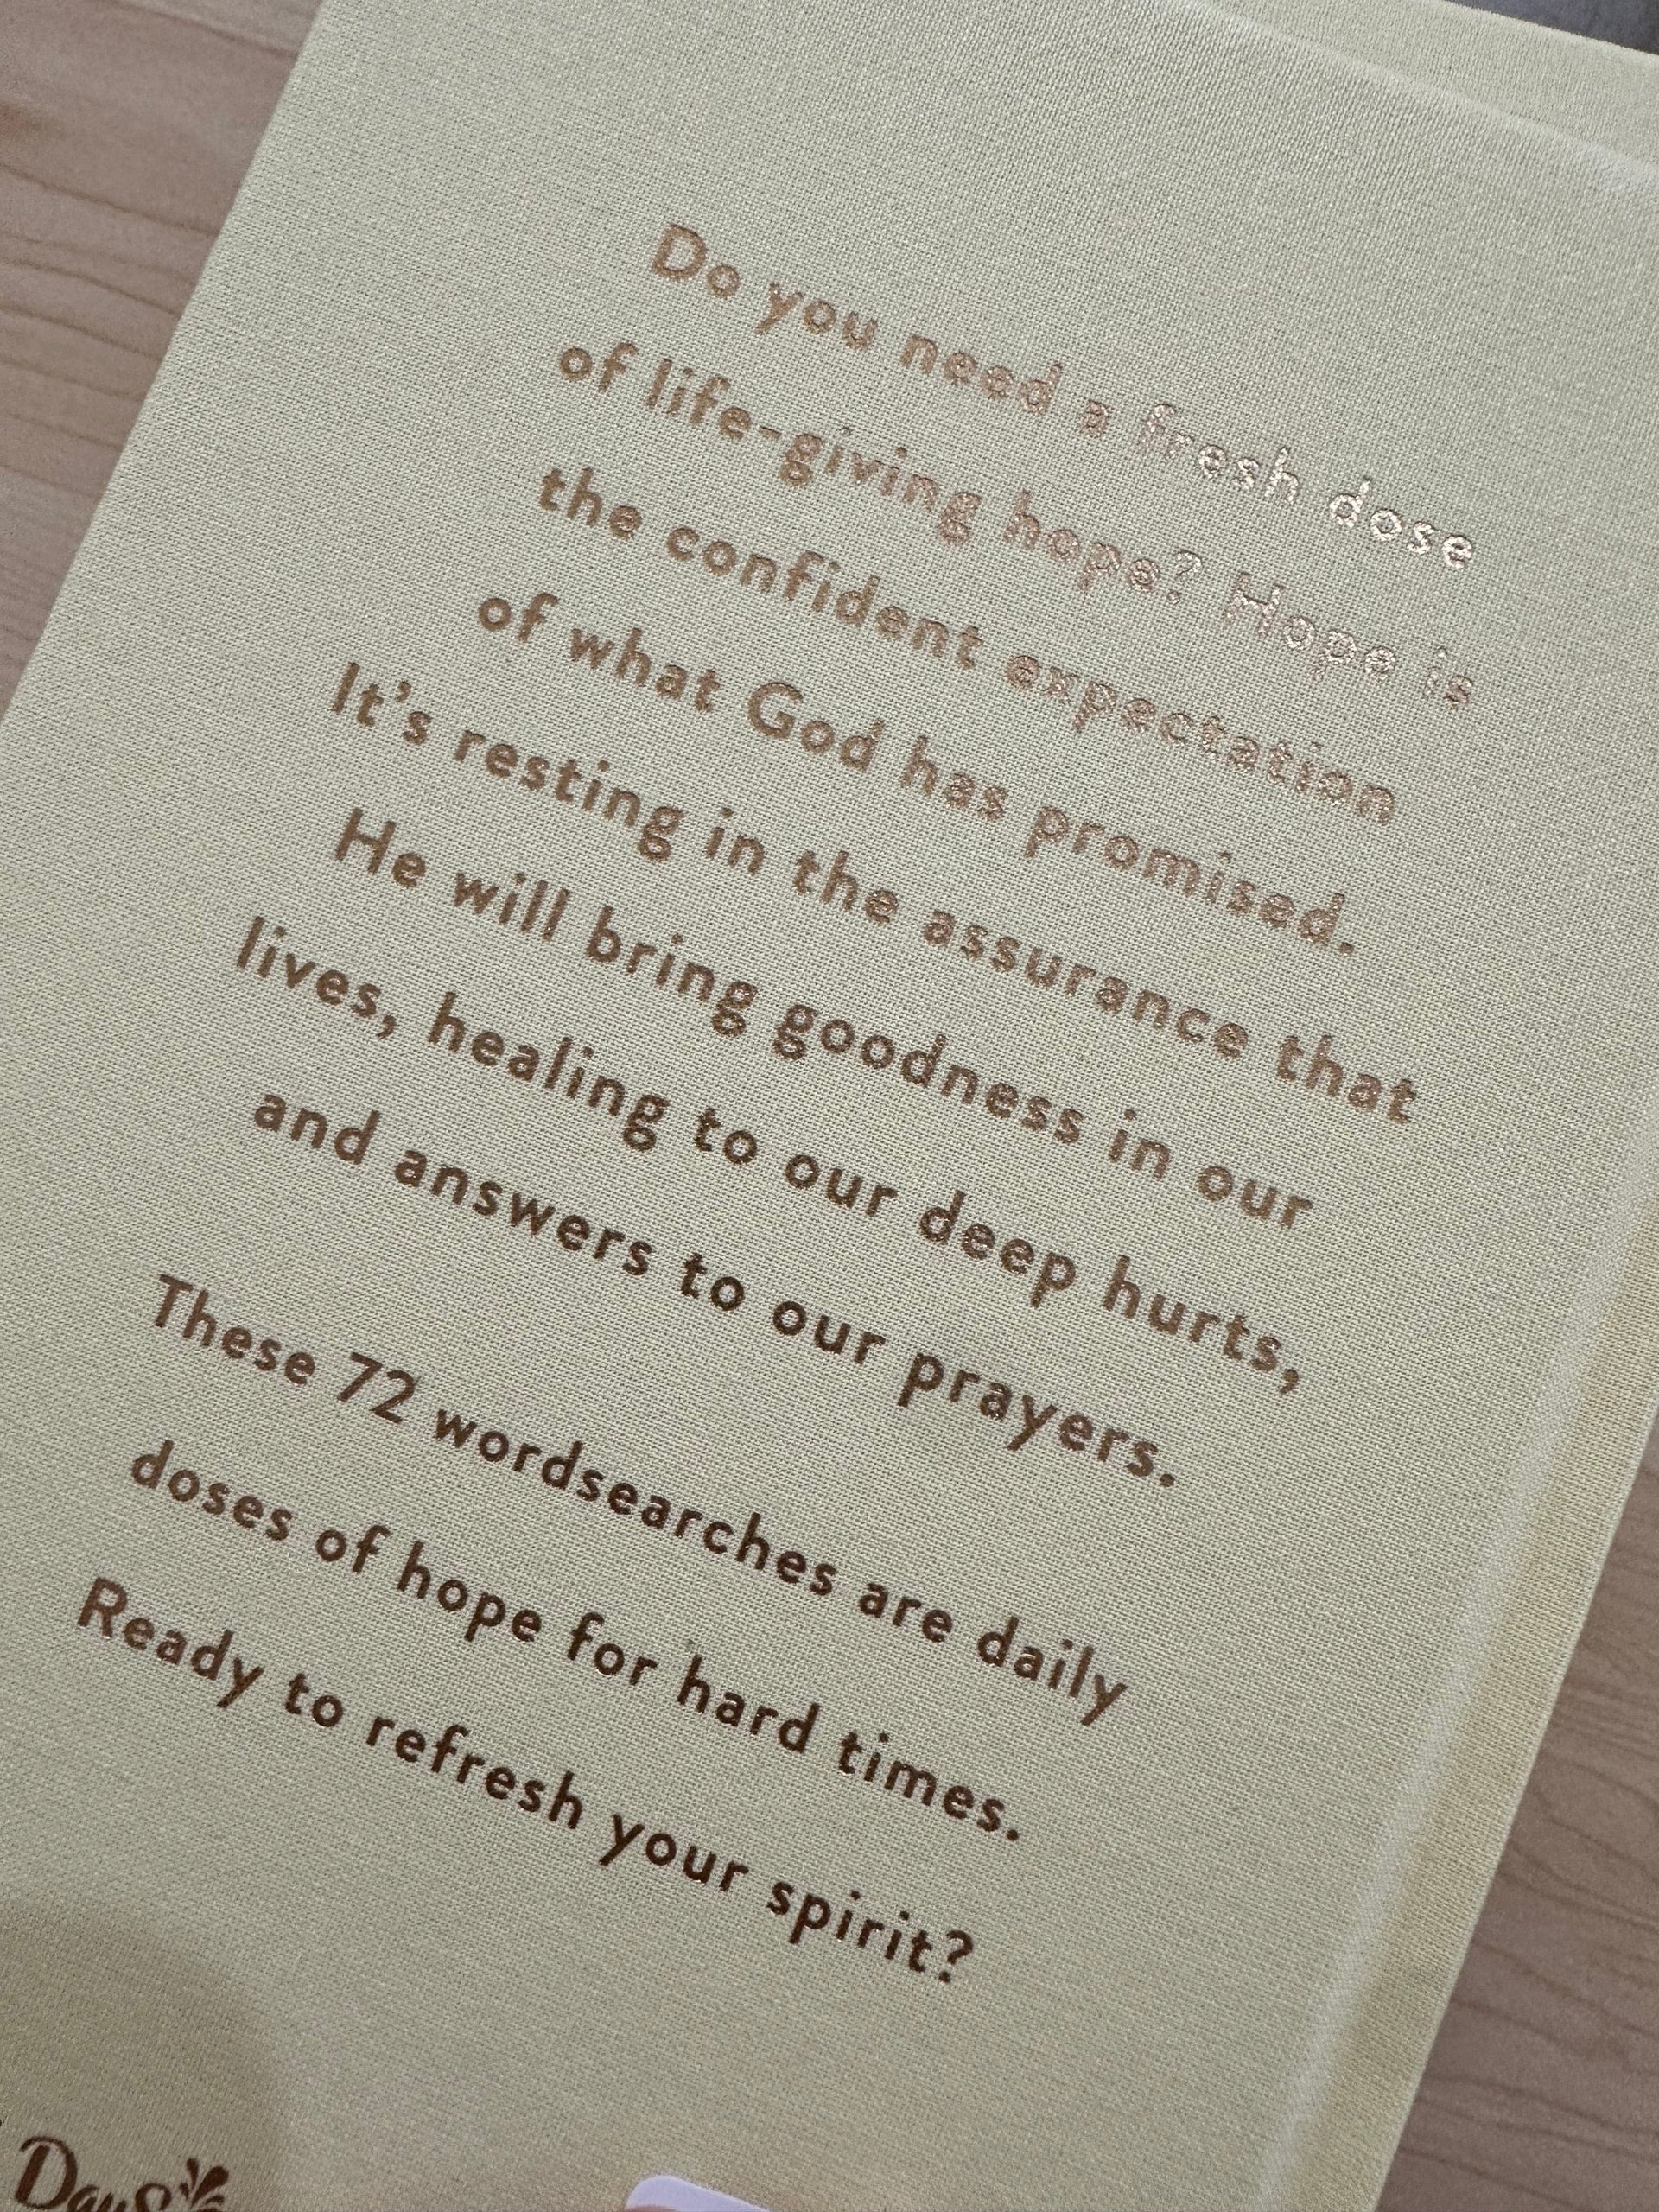 Do you need a fresh dose
of life-giving hope? Hope is
the confident expectation
of what God has promised.
It's resting in the assurance that
He will bring goodness in our
lives, healing to our deep hurts,
and answers to our prayers.
These 72 wordsearches are daily
doses of hope for hard times.
Ready to refresh your spirit?